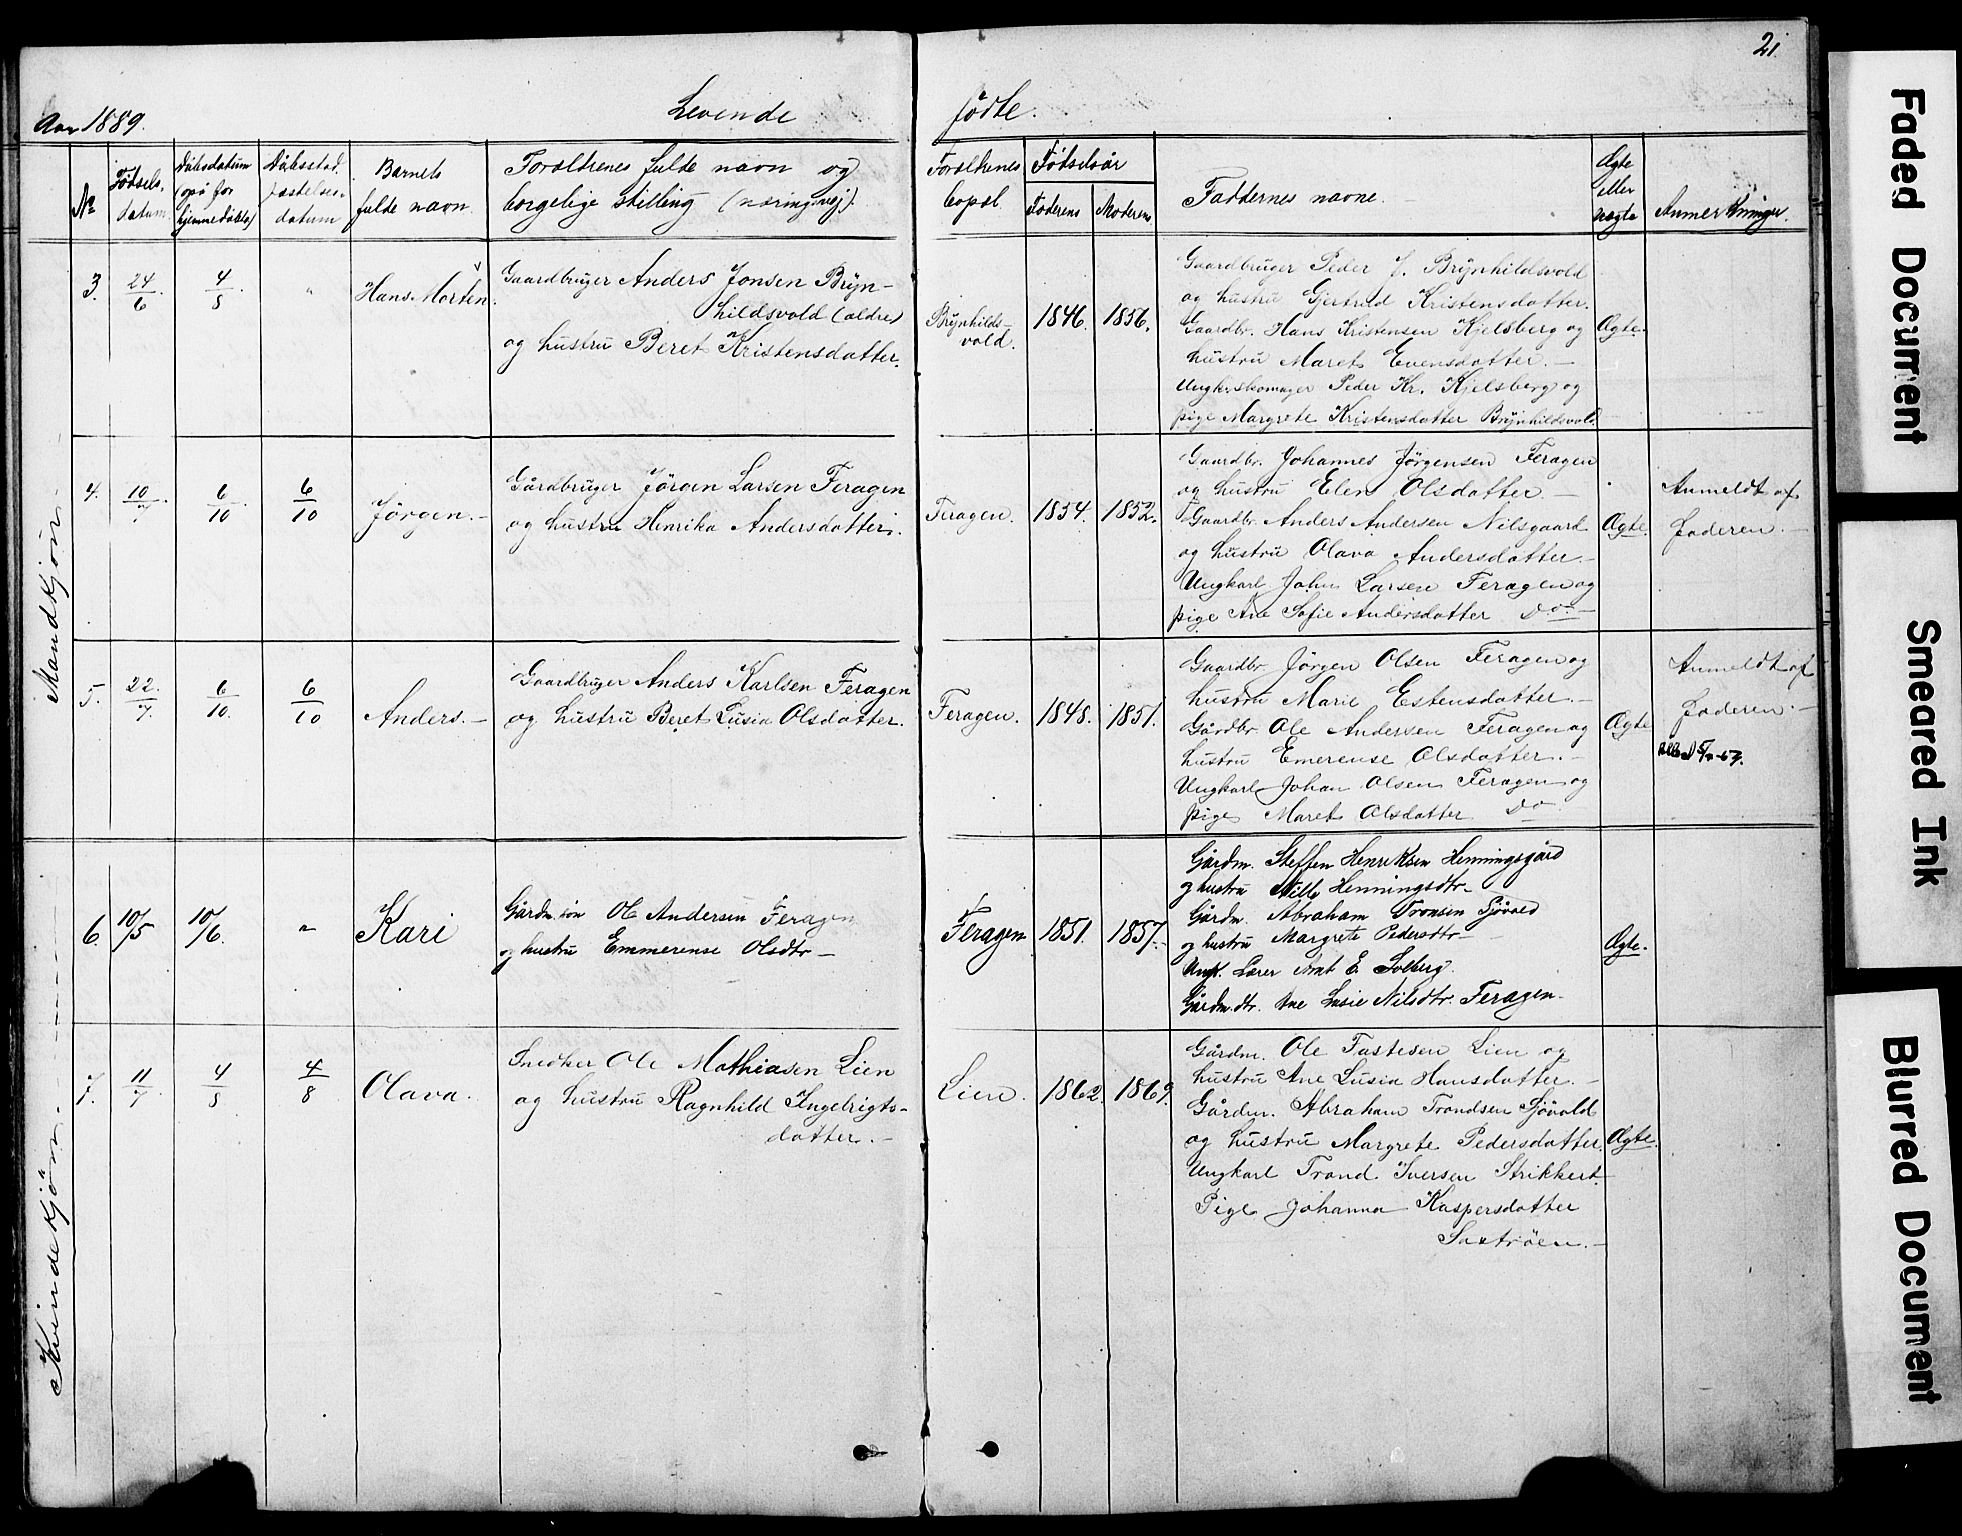 21.
Aar 1889.
Levende
fødte.
No
Fødsels-
datum.
Døbsdatum
(også for
hjemmedøbte)
Døbsstad.
fæstelsen-
datum
Barnets
fulde navn.
Forældrenes fulde navn og
borgelige stilling (næringsvej).
Forældrenes
bopæl.
Fødselsår
Faderens
Moderens
Faddernes navne.
Ægte
eller
uægte
Anmerkninger.
Mandkjøn.
3.
24/6
4/8
"
Hans Morten.
Gaardbruger Anders Jonsen Bryn-
hildsvold (ældre)
og hustru Beret Kristensdatter.
Brynhilds-
vold.
1846.
1856.
Gaardbruger Peder J. Brynhildsvold
og hustru Gjertrud Kristensdatter.
Gaardbr. Hans Kristensen Kjelsberg og
hustru Maret Evensdatter.
Ungk. skomager Peder Kr. Kjelsberg og
pige Margrete Kristensdatter Brynhildsvold.
Ægte.
4.
10/7.
6/10
6/10
Jörgen.
Gårdbruger Jörgen Larsen Feragen
og hustru Henrika Andersdatter.
Feragen.
1854.
1852.
Gaardbr. Johannes Jørgensen Feragen
og hustru Elen Olsdatter.
Gaardbr. Anders Andersen Nilsgaard
og hustru Olava Andersdatter
Ungkarl John Larsen Feragen og
pige Ane Sofie Andersdatter Do
Ægte.
Anmeldt af
faderen.
5.
22./7.
6/10.
6/10
Anders.
Gaardbruger Anders Karlsen Feragen
og hustru Beret Lusia Olsdatter.
Feragen.
1848.
1851.
Gaardbr. Jörgen Olsen Feragen og
hustru Marie Estensdatter.
Gårdbr. Ole Andersen Feragen og
hustru Emerense Olsdatter.
Ungkarl Johan Olsen Feragen og
pige Maret Olsdatter Do
Ægte
Anmeldt af
faderen.
Kvindekjön.
6.
10/5
10/6.
"
Kari
Gårdm. søn Ol Andersen Feragen
og hustru Emmerense Olsdtr
Feragen
1851.
1857.
Gårdm. Steffen Henriksen Henningsgård
og hustru Nille Henningsdtr.
Gårdm. Abraham Tronsen Sjøvold
og hustru Margrete Pedersdtr
Ungk. Lærer Arnt E. Solberg.
Gårdm.dtr. Ane Lusie Nilsdtr. Feragen.
Ægte.
7.
11/7
4/8
4/8
Olava.
Snedker Ole Mathiasen Lien
og hustru Ragnhild Ingebrigts-
datter.
Lien.
1862.
1869.
Gårdm. Ole Fastesen Lien og
hustru Ane Lusia Hansdatter.
Gårdm. Abraham Trondsen Sjövold
og hustru Margrete Pedersdatter.
Ungkarl Trond Iversen Strikkert.
Pige Johanna Kaspersdatter
Sætröen.
Ægte.
Faded Document
Smeared Ink
Blurred Document